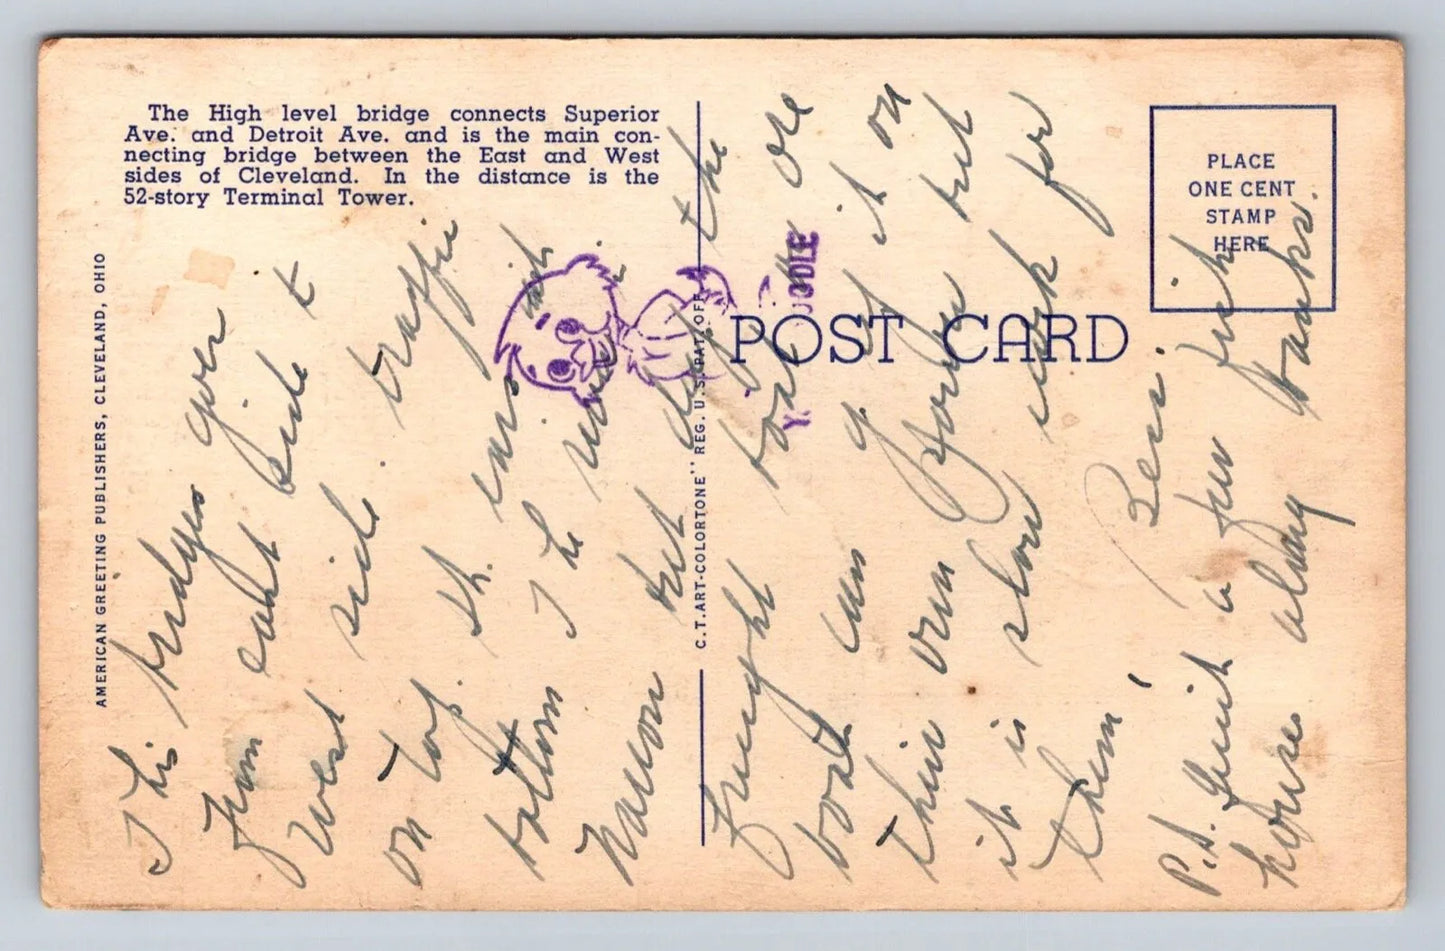 The High level bridge connects Superior
Ave. and Detroit Ave. and is the main con-
necting bridge between the East and West
sides of Cleveland. In the distance is the
52-story Terminal Tower.
AMERICAN GREETING PUBLISHERS, CLEVELAND, OHIO
C.T. ART-COLORTONE" REG. U.S. PAT. OFF.
POST CARD
PLACE
ONE CENT
STAMP
HERE
This bridge goes over
from east side to
West side. traffic
on top. St. cars on
bottom The river is
narrow but deep the
freight boats ore
boats can go it on
their own power but
it is slow work for
them'
Bess.
P.S. Quite a few fish
houses along banks.